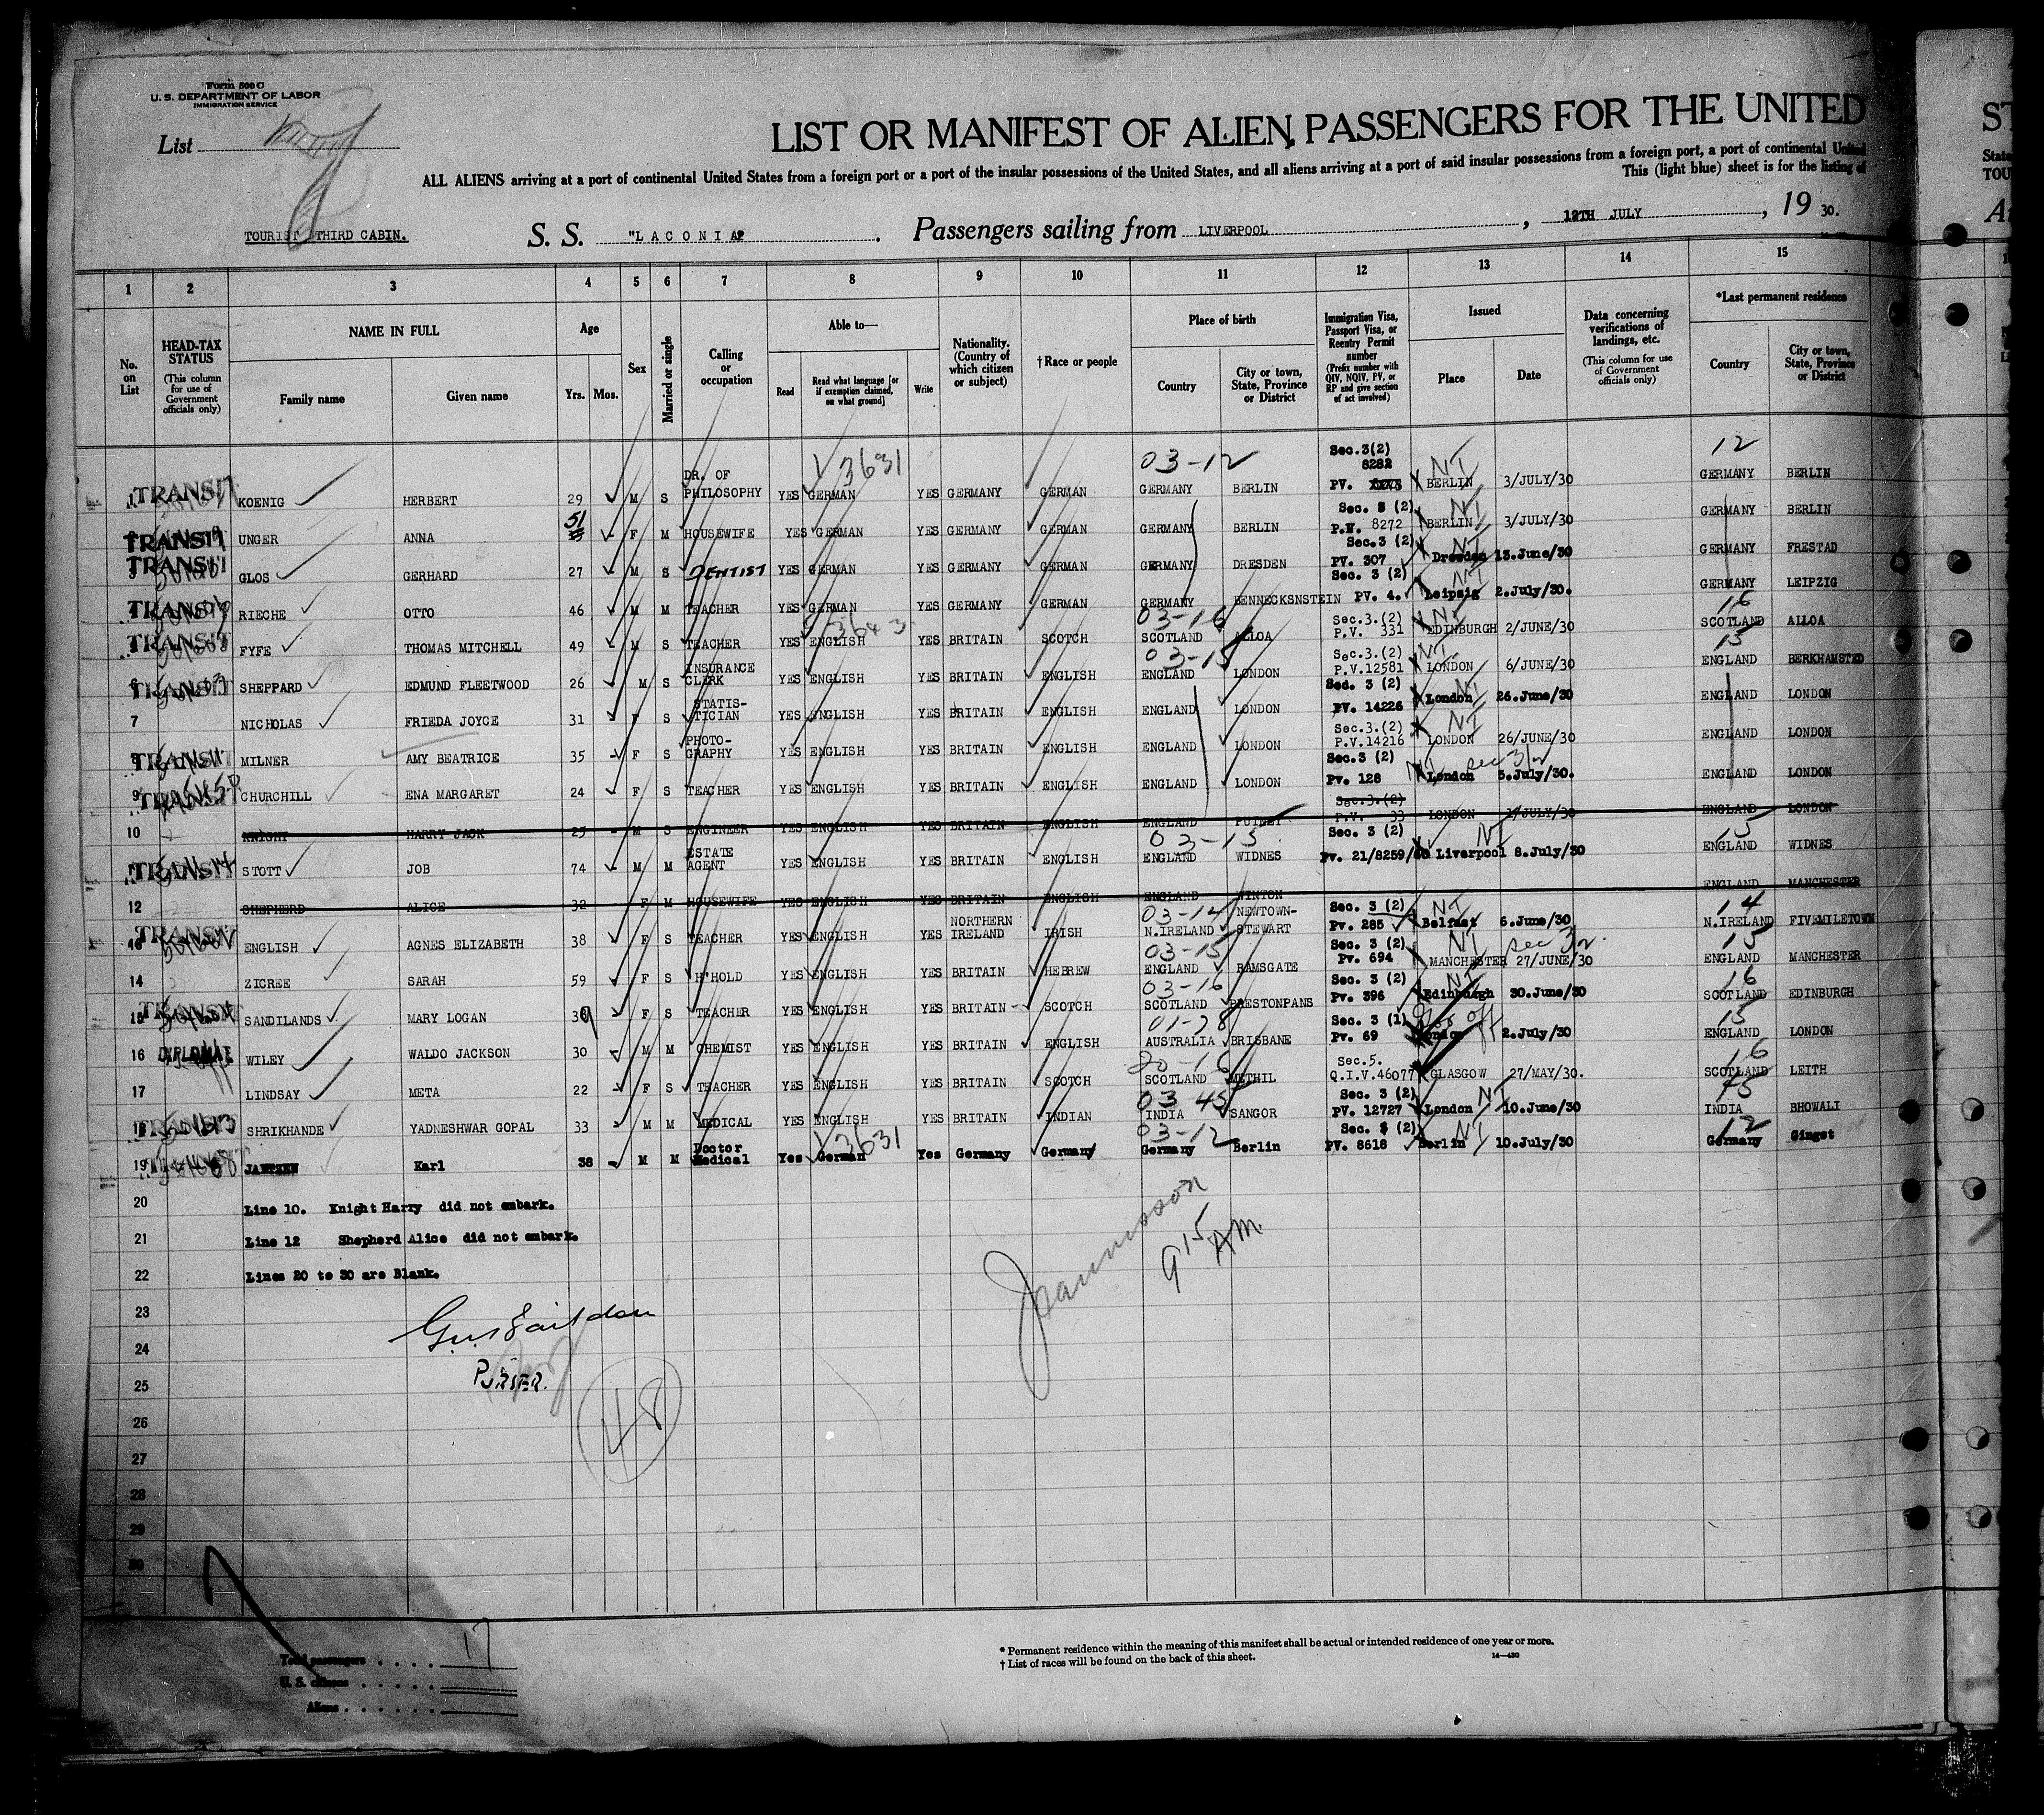 Form 500 C
U. S. DEPARTMENT OF LABOR
IMMIGRATION SERVICE
List
LIST OR MANIFEST OF ALIEN PASSENGERS FOR THE UNITED
ALL ALIENS arriving at a port of continental United States from a foreign port or a port of the insular possessions of the United States, and all aliens arriving at a port of said insular possessions from a foreign port, a port of continental United
This (light blue) sheet is for the listing of
TOURIST THIRD CABIN. S. S. "LACONIA" . Passengers sailing from LIVERPOOL , 12TH JULY , 19 30.
1 2 3 4 5 6 7 8 9 10 11 12 13 14 15
No. on List
HEAD-TAX STATUS (This column for use of Government officials only)
NAME IN FULL Family name Given name
Age Yrs. Mos.
Sex
Married or single
Calling or occupation
Able to— Read Read what language [or if exemption claimed, on what ground] Write
Nationality. (Country of which citizen or subject)
† Race or people
Place of birth Country City or town, State, Province or District
Immigration Visa, Passport Visa, or Reentry Permit number (Prefix number with QIV, NQIV, PV, or RP and give section of act involved)
Issued Place Date
Data concerning verifications of landings, etc. (This column for use of Government officials only)
*Last permanent residence Country City or town, State, Province or District
√ 3631 03-12 Sec.3(2) 8282 NT 12
TRANSIT KOENIG HERBERT 29 M S DR. OF PHILOSOPHY YES GERMAN YES GERMANY GERMAN GERMANY BERLIN PV. BERLIN 3/JULY/30 GERMANY BERLIN
TRANSIT UNGER ANNA 51 F M HOUSEWIFE YES GERMAN YES GERMANY GERMAN GERMANY BERLIN Sec. 3 (2) P.V. 8272 NT BERLIN 3/JULY/30 GERMANY BERLIN
TRANSIT GLOS GERHARD 27 M S DENTIST YES GERMAN YES GERMANY GERMAN GERMANY DRESDEN Sec.3 (2) PV. 307 NT Dresden 13.June/30 GERMANY FRESTAD
TRANSIT RIECHE OTTO 46 M M TEACHER YES GERMAN YES GERMANY GERMAN GERMANY BENNECKSNSTEIN Sec. 3 (2) PV. 4. NT Leipzig 2.July/30. GERMANY LEIPZIG
3643 03-16 16
TRANSIT FYFE THOMAS MITCHELL 49 M S TEACHER YES ENGLISH YES BRITAIN SCOTCH SCOTLAND ALLOA Sec.3.(2) P.V. 331 NT EDINBURGH 2/JUNE/30 SCOTLAND ALLOA
03-15 15
TRANSIT SHEPPARD EDMUND FLEETWOOD 26 M S INSURANCE CLERK YES ENGLISH YES BRITAIN ENGLISH ENGLAND LONDON Sec.3.(2) P.V.12581 NT LONDON 6/JUNE/30 ENGLAND BERKHAMSTED
7 NICHOLAS FRIEDA JOYCE 31 F S STATIS- TICIAN YES ENGLISH YES BRITAIN ENGLISH ENGLAND LONDON Sed. 3 (2) PV. 14226 NT London 26.June/30 ENGLAND LONDON
TRANSIT MILNER AMY BEATRICE 35 F S PHOTO- GRAPHY YES ENGLISH YES BRITAIN ENGLISH ENGLAND LONDON Sec.3.(2) P.V.14216 NT LONDON 26/JUNE/30 ENGLAND LONDON
9 TRANSIT CHURCHILL ENA MARGARET 24 F S TEACHER YES ENGLISH YES BRITAIN ENGLISH ENGLAND LONDON Sec.3 (2) Pv. 128 NT London 5.July/30. ENGLAND LONDON
10 KNIGHT HARRY JACK 25 M S ENGINEER YES ENGLISH YES BRITAIN ENGLISH ENGLAND PUTNEY Sec.3.(2) P.V. 33 LONDON 1/JULY/30 ENGLAND LONDON
03-15 15
TRANSIT STOTT JOB 74 M M ESTATE AGENT YES ENGLISH YES BRITAIN ENGLISH ENGLAND WIDNES Sec. 3 (2) Pv. 21/8259/ NT Liverpool 8.July/30 ENGLAND WIDNES
12 SHEPHERD ALICE 32 F M HOUSEWIFE YES ENGLISH YES BRITAIN ENGLISH ENGLAND WINTON ENGLAND MANCHESTER
03-14 14
TRANSIT ENGLISH AGNES ELIZABETH 38 F S TEACHER YES ENGLISH YES NORTHERN IRELAND IRISH N.IRELAND NEWTOWN- STEWART Sec. 3 (2) Pv. 285 NT Belfast 6.June/30 N.IRELAND FIVEMILETOWN
03-15 15
14 ZICREE SARAH 59 F S H'HOLD YES ENGLISH YES BRITAIN HEBREW ENGLAND RAMSGATE Sec. 3 (2) Pv. 694 NT MANCHESTER 27/JUNE/30 ENGLAND MANCHESTER
03-16 16
15 TRANSIT SANDILANDS MARY LOGAN F S TEACHER YES ENGLISH YES BRITAIN SCOTCH SCOTLAND PRESTONPANS Sec. 3 (2) Pv. 396 NT Edinburgh 30.June/30 SCOTLAND EDINBURGH
01-28 15
16 DIPLOMAT WILEY WALDO JACKSON 30 M M CHEMIST YES ENGLISH YES BRITAIN ENGLISH AUSTRALIA BRISBANE Sec. 3 (1) Pv. 69 London 2.July/30 ENGLAND LONDON
20-16 16
17 LINDSAY META 22 F S TEACHER YES ENGLISH YES BRITAIN SCOTCH SCOTLAND METHIL Sec.5. Q.I.V.46077 GLASGOW 27/MAY/30. SCOTLAND LEITH
03 45 45
TRANSIT SHRIKHANDE YADNESHWAR GOPAL 33 M M MEDICAL YES ENGLISH YES BRITAIN INDIAN INDIA SANGOR Sec. 3 (2) PV. 12727 NT London 10.June/30 INDIA BHOWALI
√ 3631 03-12 12
19 Karl 38 M M Doctor Medical Yes German Yes Germany Germany Germany Berlin Sec. 3 (2) PV. 8618 NT Berlin 10.July/30 Germany Gingst
20 Line 10. Knight Harry did not embark.
21 Line 12 Shepherd Alice did not embark.
22 Lines 20 to 30 are Blank.
23
24
25 PURSER.
26
27
28
29
30
9 15 AM.
48
Total passengers 17
U. S. citizens
Aliens
* Permanent residence within the meaning of this manifest shall be actual or intended residence of one year or more.
† List of races will be found on the back of this sheet.
14—430